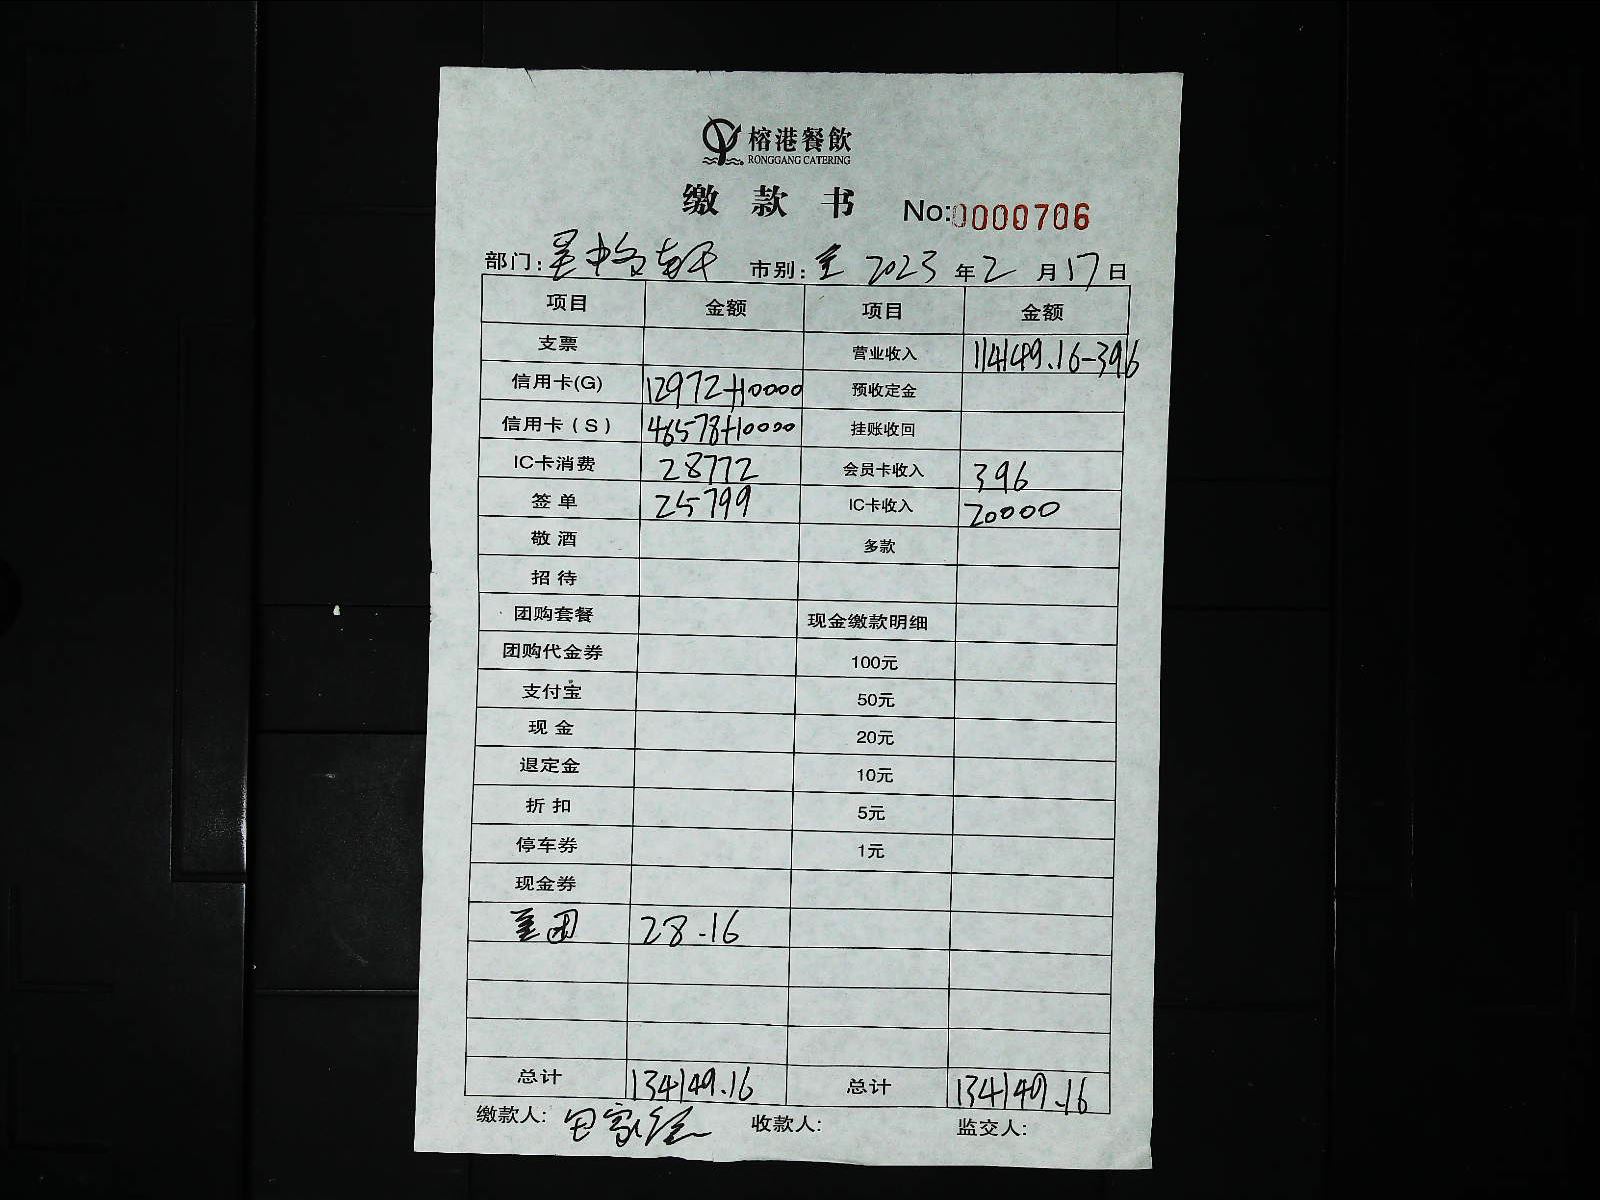 榕港餐飲
RONGGANG CATERING
缴款书 No:0000706
部门: 市别: 全 2023 年 2 月 17 日
项目 金额 项目 金额
支票 营业收入 114149.16-396
信用卡(G) 12972+10000 预收定金
信用卡(S) 46578+10000 挂账收回
IC卡消费 28772 会员卡收入 396
签单 25799 IC卡收入 20000
敬酒 多款
招待
团购套餐 现金缴款明细
团购代金券 100元
支付宝 50元
现金 20元
退定金 10元
折扣 5元
停车券 1元
现金券
美团 28.16
总计 134149.16 总计 134149.16
缴款人: 收款人: 监交人: